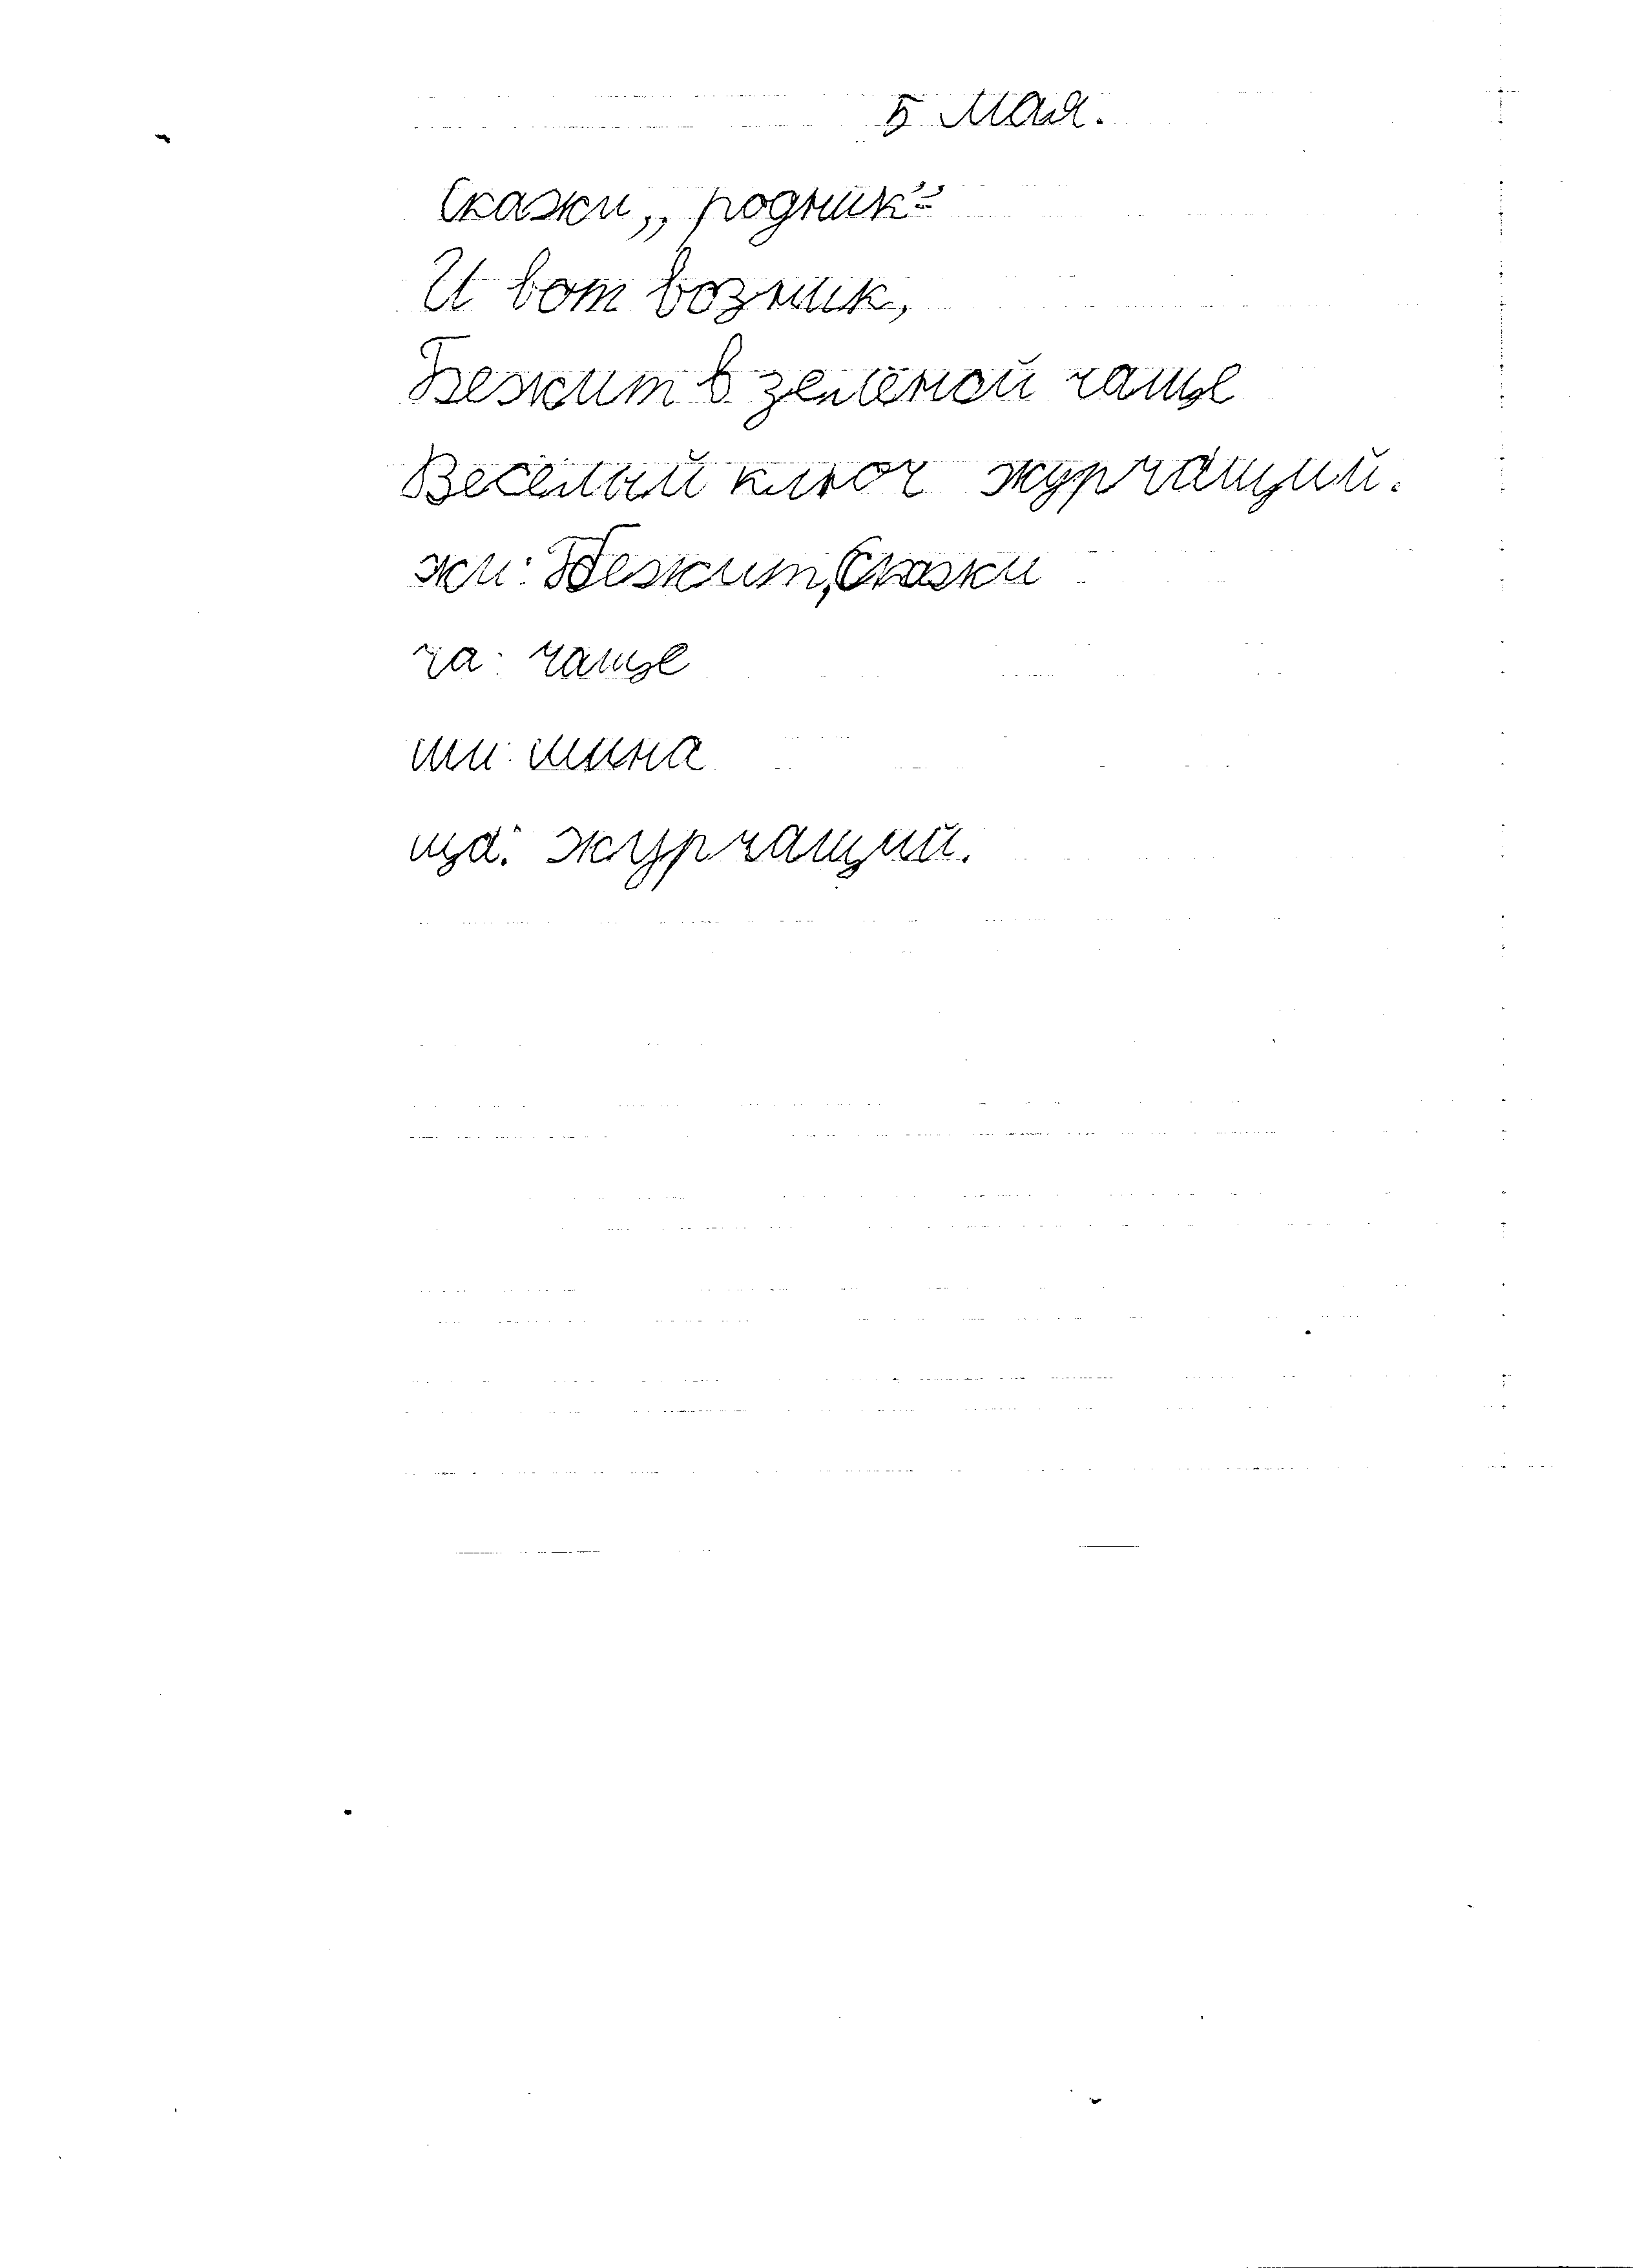 5 мая.
Скажи „родник"-
И вот возник,
Бежит в зелёной чаще
Весёлый ключ журчащий.
жи: Бежит, Скажи
ча: чаще
ши: шина
ща: журчащий.